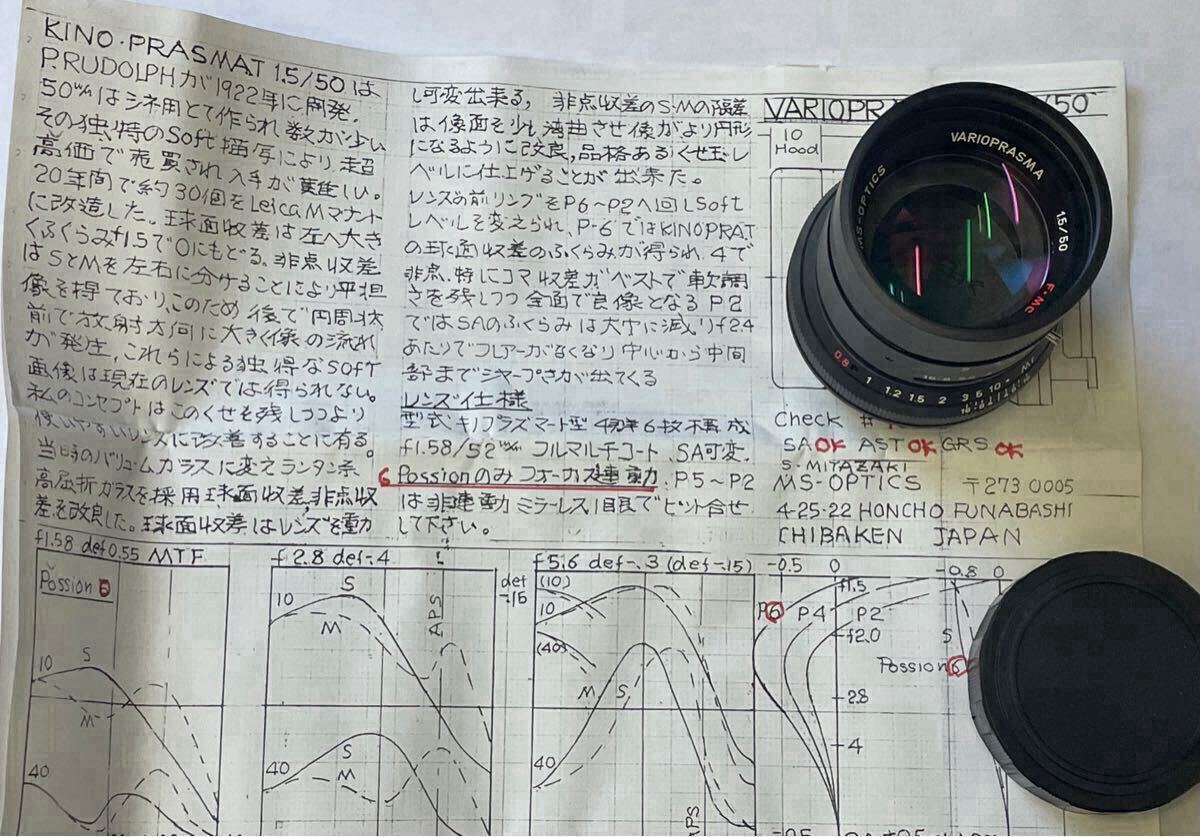 KINO・PRASMAT 1.5/50は
P.RUDOLPHが1922年に開発.
50m/mはシネ用とて作られ数が少い
その独特のSoft描写により超
高価で売買され入手が難しい.
20年間で約30個をLeica Mマウント
に改造した. 球面収差は左へ大き
くふくらみf1.5で0にもどる. 非点収差
はSとMを左右に分けることにより平坦
像を得ており,このため後で円周状
前で放射方向に大きく像の流れ
が発生, これらによる独得なSoft
画像は現在のレンズでは得られない.
私のコンセプトはこのくせを残しつつより
使いやすいレンズに改善することに有る.
当時のバリュームガラスに変えランタン系
高屈折ガラスを採用球面収差,非点収
差を改良した. 球面収差はレンズを動
し可変出来る, 非点収差のS-Mの隔差
は像面を少し湾曲させ像がより円形
になるように改良,品格あるくせ玉レ
ベルに仕上げることが出来た.
レンズの前リングをP6~P2へ回しSoft
レベルを変えられ, P-6ではKINOPRAT
の球面収差のふくらみが得られ, 4で
非点.特にコマ収差がベストで軟調
さを残しつつ全面で良像となる P2
ではSAのふくらみは大巾に減りf2.4
あたりでフレアーがなくなり中心から中間
部までシャープさが出てくる
レンズ仕様
型式キノプラズマート型 4群6枚構成
f1.58/52m/m フルマルチコート, SA可変.
6 Possionのみフォーカス連動, P5~P2
は非連動 ミラーレス1眼でピント合せ
して下さい.
VARIOPR
/50
10
Hood
MS-OPTICS
VARIOPRASMA
1.5/50.
F.MC
0.8 1 1.2 1.5 2 3 5 10
Check #
SA OK AST OK GRS OK
S-MIYAZAKI
MS-OPTICS 〒273 0005
4-25-22 HONCHO FUNABASHI
CHIBAKEN JAPAN
f1.58 def0.55 MTF
Possion 6
10
S
M
40
f2.8 def-.4
10
S
M
APS
40
S
M
f5.6 def-.3 (def-.15)
def
-.15
(10)
10
(40)
M
S
40
APS
-0.5 0
f1.5
P6 P4 P2
f2.0
2.8
4
-0.8 0
S
Possion 6